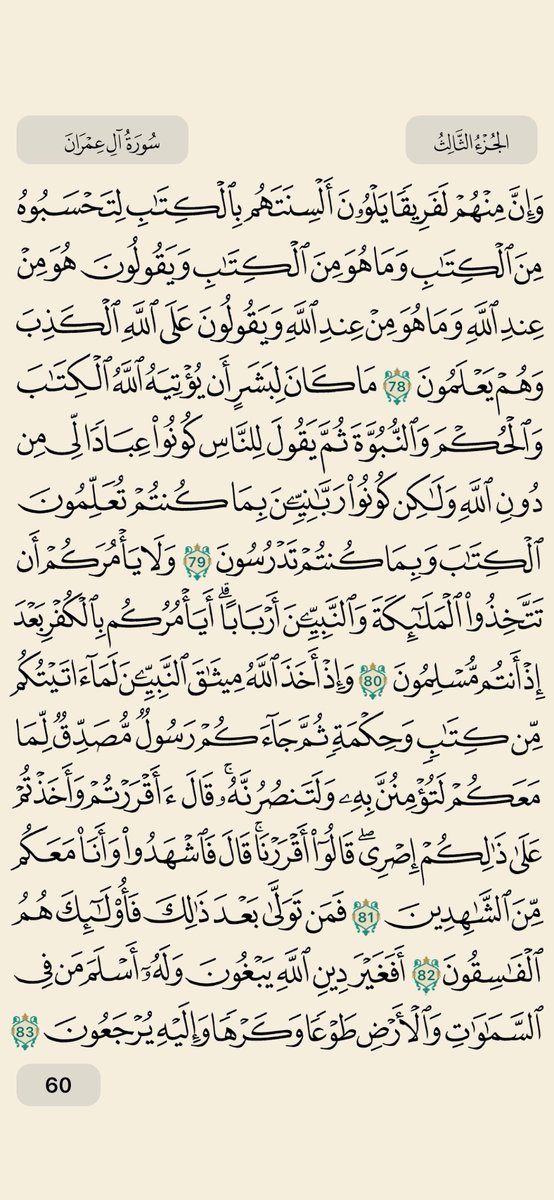 الجُزْءُ الثَّالِثُ
سُورَةُ آلِ عِمْرَانَ
وَإِنَّ مِنْهُمْ لَفَرِيقًا يَلْوُۥنَ أَلْسِنَتَهُم بِٱلْكِتَٰبِ لِتَحْسَبُوهُ
مِنَ ٱلْكِتَٰبِ وَمَا هُوَ مِنَ ٱلْكِتَٰبِ وَيَقُولُونَ هُوَ مِنْ
عِندِ ٱللَّهِ وَمَا هُوَ مِنْ عِندِ ٱللَّهِ وَيَقُولُونَ عَلَى ٱللَّهِ ٱلْكَذِبَ
وَهُمْ يَعْلَمُونَ 78 مَا كَانَ لِبَشَرٍ أَن يُؤْتِيَهُ ٱللَّهُ ٱلْكِتَٰبَ
وَٱلْحُكْمَ وَٱلنُّبُوَّةَ ثُمَّ يَقُولَ لِلنَّاسِ كُونُوا۟ عِبَادًا لِّى مِن
دُونِ ٱللَّهِ وَلَٰكِن كُونُوا۟ رَبَّٰنِيِّۦنَ بِمَا كُنتُمْ تُعَلِّمُونَ
ٱلْكِتَٰبَ وَبِمَا كُنتُمْ تَدْرُسُونَ 79 وَلَا يَأْمُرَكُمْ أَن
تَتَّخِذُوا۟ ٱلْمَلَٰٓئِكَةَ وَٱلنَّبِيِّۦنَ أَرْبَابًا ۗ أَيَأْمُرُكُم بِٱلْكُفْرِ بَعْدَ
إِذْ أَنتُم مُّسْلِمُونَ 80 وَإِذْ أَخَذَ ٱللَّهُ مِيثَٰقَ ٱلنَّبِيِّۦنَ لَمَآ ءَاتَيْتُكُم
مِّن كِتَٰبٍ وَحِكْمَةٍ ثُمَّ جَآءَكُمْ رَسُولٌ مُّصَدِّقٌ لِّمَا
مَعَكُمْ لَتُؤْمِنُنَّ بِهِۦ وَلَتَنصُرُنَّهُۥ ۚ قَالَ ءَأَقْرَرْتُمْ وَأَخَذْتُمْ
عَلَىٰ ذَٰلِكُمْ إِصْرِى ۖ قَالُوٓا۟ أَقْرَرْنَا ۚ قَالَ فَٱشْهَدُوا۟ وَأَنَا۠ مَعَكُم
مِّنَ ٱلشَّٰهِدِينَ 81 فَمَن تَوَلَّىٰ بَعْدَ ذَٰلِكَ فَأُو۟لَٰٓئِكَ هُمُ
ٱلْفَٰسِقُونَ 82 أَفَغَيْرَ دِينِ ٱللَّهِ يَبْغُونَ وَلَهُۥٓ أَسْلَمَ مَن فِى
ٱلسَّمَٰوَٰتِ وَٱلْأَرْضِ طَوْعًا وَكَرْهًا وَإِلَيْهِ يُرْجَعُونَ 83
60